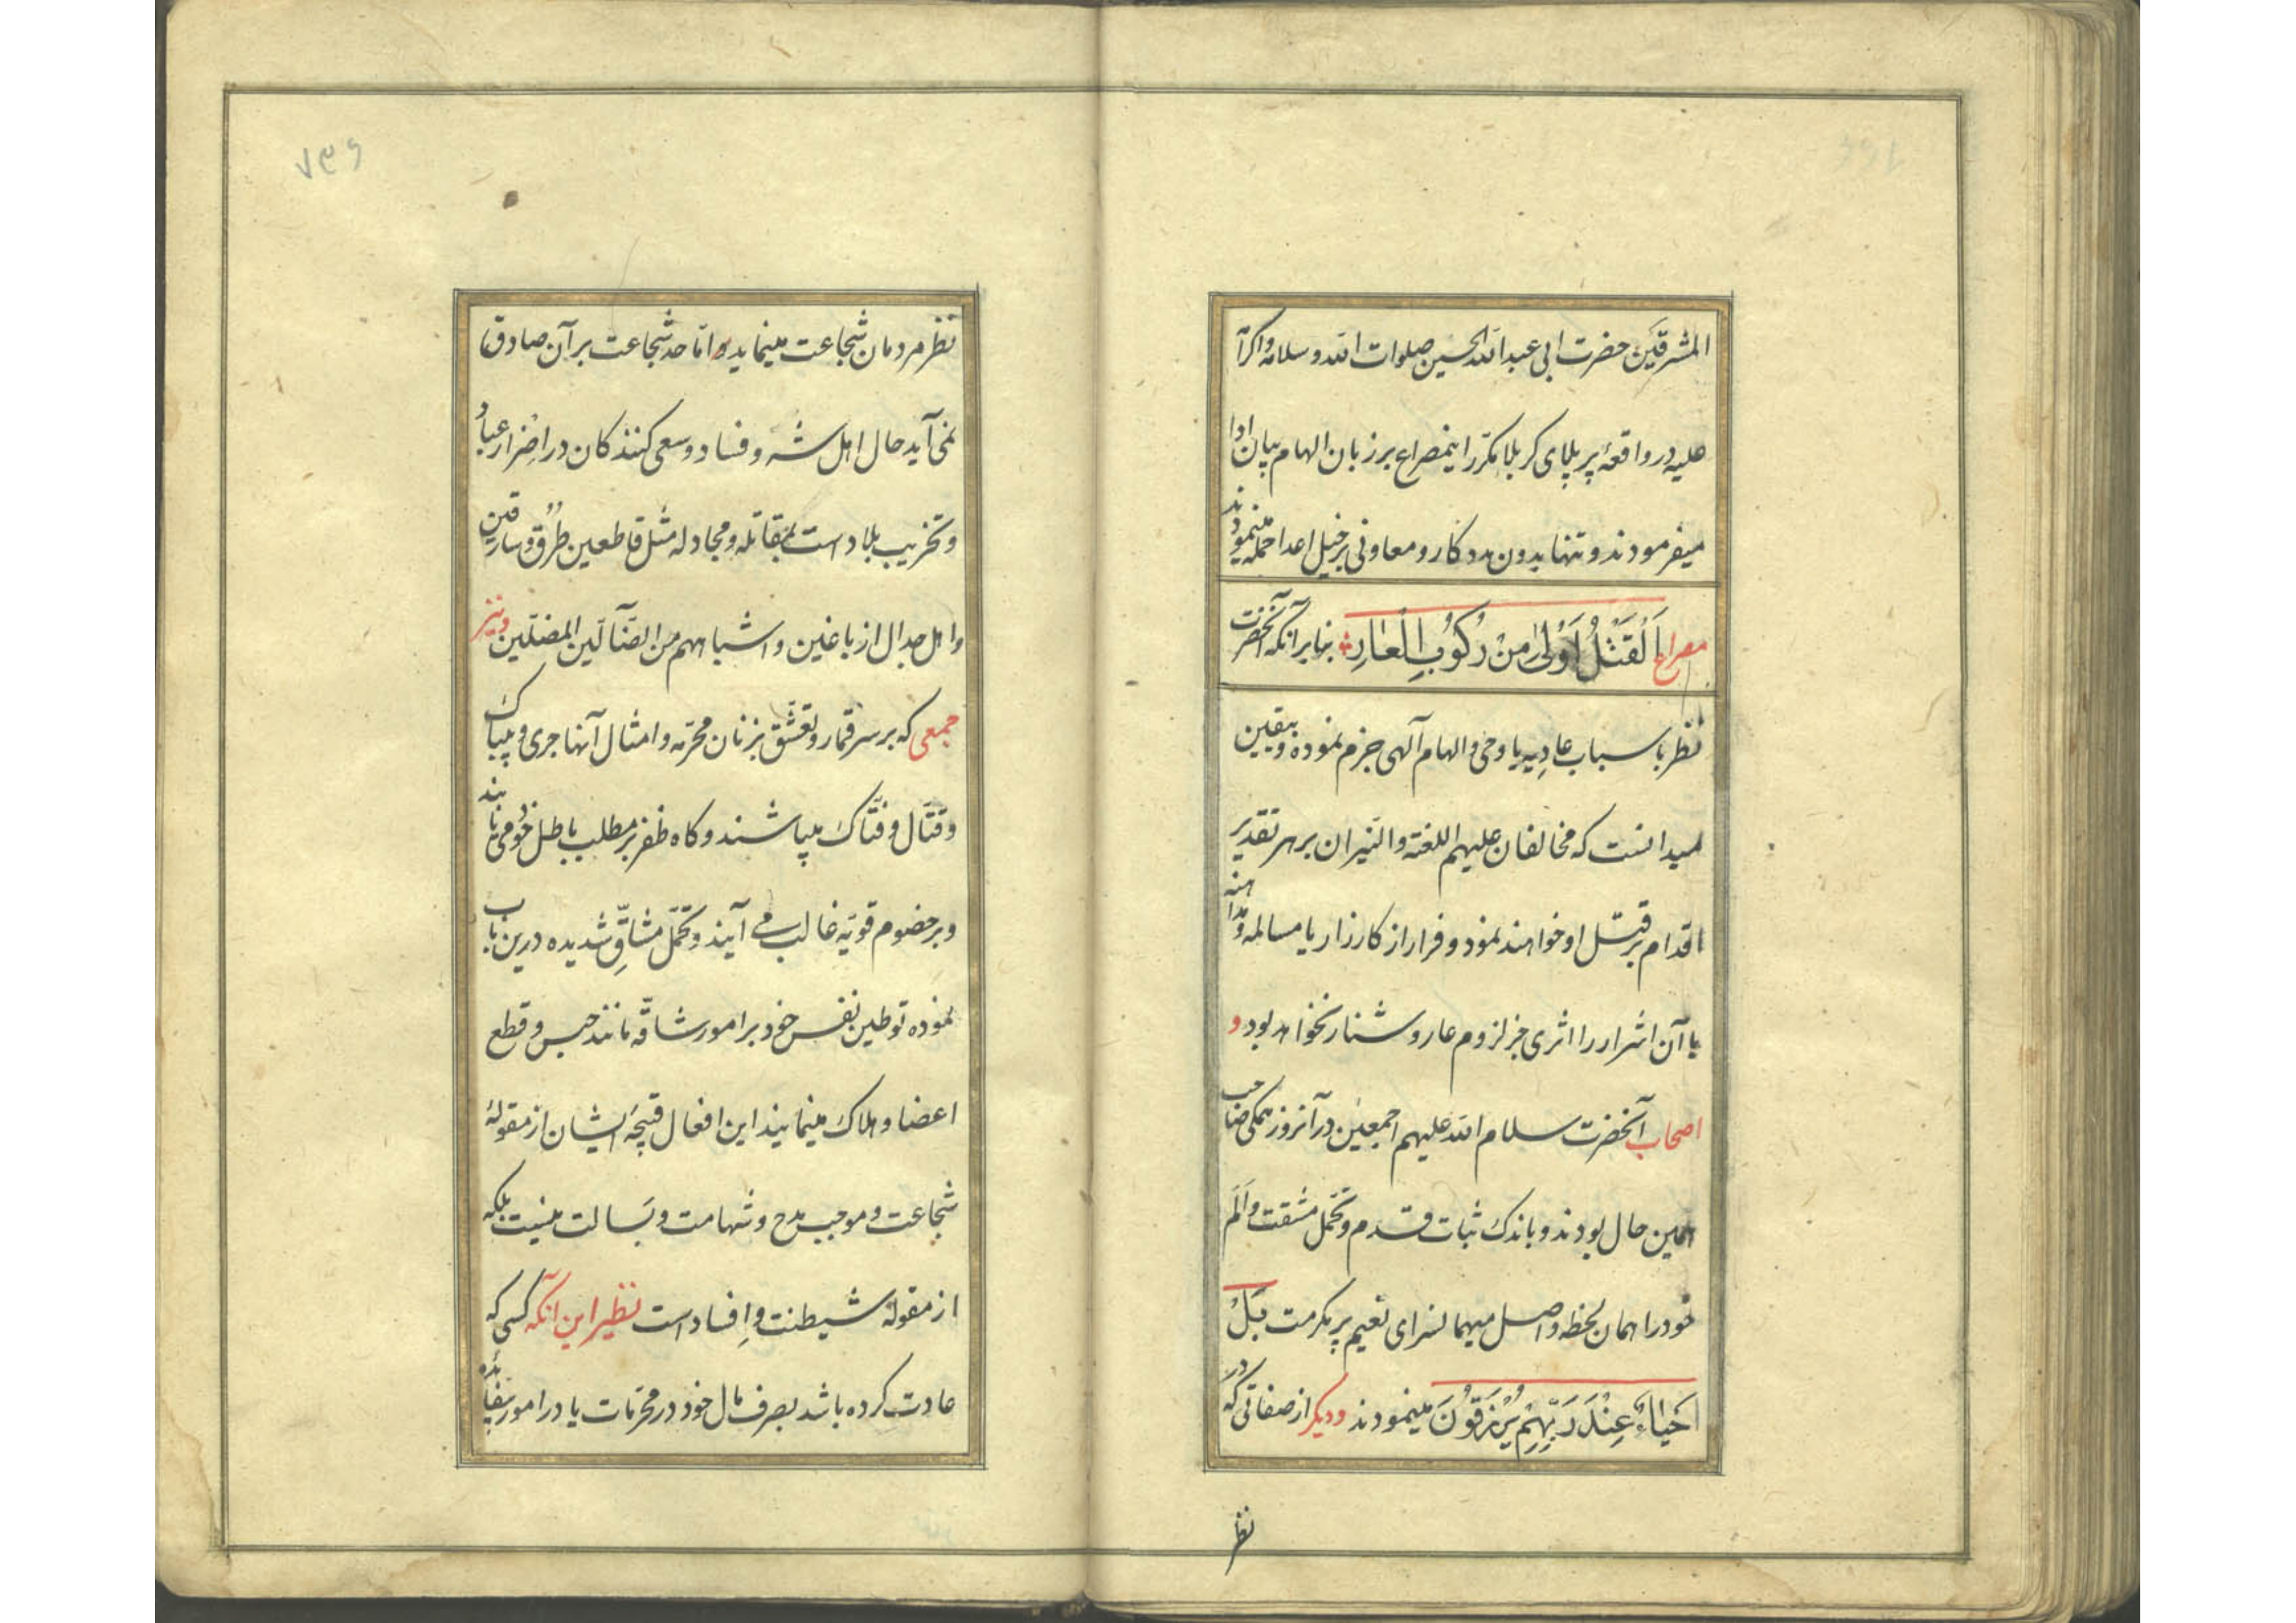 المشرقین حضرت ابی عبدالله الحسین صلوات الله وسلامه واکرا
علیه در واقعهٔ پر بلای کربلا مکرّر اینمصراع بر زبان الهام بیان ادا
میفرمودند و تنها بدون مددکار و معاونی بر خیل اعدا حمله مینمودند
مصراع اَلْقَتْلُ اَوْلیٰ مِنْ رُکُوبِ الْعَارِ بنابر آنکه آنحضرت
نظر باسباب عادیه یا وحی و الهام آلهی جزم نموده و بیقین
میدانست که مخالفان علیهم اللعنة والنیران بر هر تقدیر
اقدام بر قتل او خواهند نمود و فرار از کارزار یا مسالمه و مداهنه
با آن اشرار را اثری جز لزوم عار و شنار نخواهد بود و
اصحاب آنحضرت سلام الله علیهم اجمعین در آنروز همگی صاحب
همین حال بودند و باندک ثبات قدم و تحمّل مشقت و اَلَم
خود را همان لحظه واصل میهمانسرای نعیم پر مکرمت بَلْ
اَحْیَاءٌ عِنْدَ رَبِّهِمْ یُرْزَقُونَ مینمودند و دیگر از صفاتی که در
نظر
۷۳۶
نظر مردمان شجاعت مینماید و امّا حد شجاعت بر آن صادق
نمی آید حال اهل شر و فساد و سعی کنندکان در اضرار عباد
و تخریب بلاد است بمقاتله و مجادله مثل قاطعین طُرُق و سارقین
و اهل جدال از باغین و اشباههم من الضّآلّین المضلّین و نیز
جمعی که بر سر قمار و تعشّق بزنان محرّمه و امثال آنها جری و بیباک
و قتّال و فتّاک میباشند و کاه ظفر بر مطلب باطل خود می یابند
و بر خصوم قویّه غالب می آیند و تحمّل مشاقّ شدیده درین باب
نموده توطین نفس خود بر امور شاقّه مانند حبس و قطع
اعضا و هلاک مینمایند این افعال قبیحهٔ ایشان از مقولهٔ
شجاعت و موجب مدح و شهامت و بسالت نیست بلکه
از مقولهٔ شیطنت و اِفساد است نظیر این آنکه کسی که
عادت کرده باشد بصرف مال خود در محرّمات یا در امور بیفایده